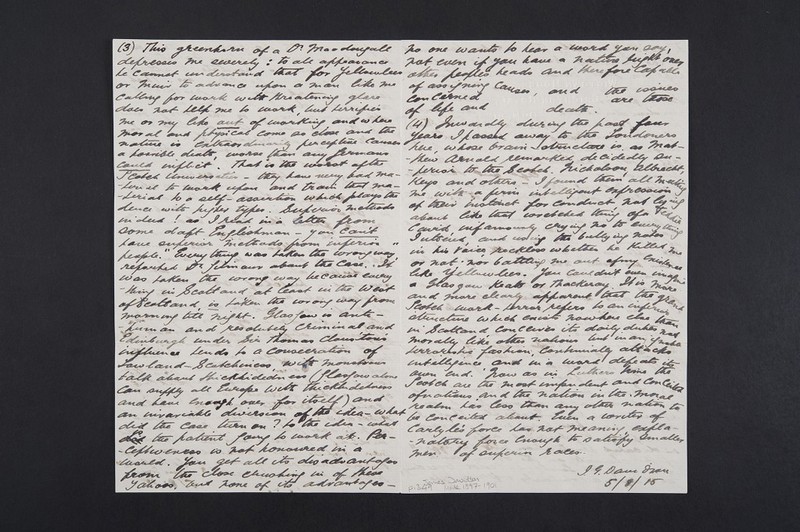 (3) This greenhorn of a Dr Macdougall
depresses me severely: to all appearance
he cannot understand that for Yellowlees
or Muir to advance upon a man like me
calling for work with threatening glare
does not help me to work, but terrifies
me or my like out of working and where
moral and physical come as close and the
nature is extraordinarily perceptive causes
a possible death, worse than any Germans
could inflict. That is the worst of the
Scotch Universities - they have very bad ma-
terial to work upon and train that ma-
terial to a self-assertion which plays the
deuce with higher types. Superior methods
indeed! as I read in a letter from
some daft Englishman - "you can't
have superior methods from inferior
people." Everything was taken the wrong way
reported Dr Gilmour about the case. It
was taken the wrong way because every-
-thing in Scotland at least in the West
of Scotland, is taken the wrong way from
morning till night. Glasgow is anti-
-human and resolutely criminal and
Edinburgh under Sir Thomas Clouston's
influence tends to a consecration of
Lowland-Scotchness, with monstrous
talk about thickheadedness (Glasgow alone
can supply all Europe with thickheadedness
and have enough over for itself) and
an invariable diversion of the idea - what
did the case turn on? to the idea - what
did the patient say to work at. Per-
ceptiveness is not honoured in a
world. You get all its disadvantages
from the close crushing in of these
Yahoos, and none of its advantages -
no one wants to hear a word you say,
not even if you have a nature bright over
other peoples heads and therefore capable
of assigning causes, and the issues
concerned are those
of life and death.
(4) Inwardly during the past few
years I passed away to the Londoners
here, whose brain-structure is, as Mat-
thew Arnold remarked decidedly su-
perior to the Scotch. Nicholson, Albrecht,
Keys and others - I found them all meeting
me with a firm intelligent expression
of their instinct for conduct not lying
about like that wretched thing of a
infamously crying no to everything
I uttered, and using the bullying noise
in his voice, reckless whether he killed me
or not nor battling me out of my existence
like Yellowlees. You couldn't even imagine
a Glasgow Keats or Thackeray. It is more
and more clearly apparent that the grand
Scotch work - refers to an inferior
structure which exists nowhere else than
in Scotland conceives its daily duties not
morally like other nations but in an
terrorising fashion, continually attacks
intelligence, and in a word defeats its
own end. Now as in Luther's time the
Scotch are the most impudent and conceited
of nations and the nation in the moral
realm has less than any other nation to
be conceited about. Even a writer of
Carlyle's force has not meaning, expla-
-natory force enough to satisfy smaller
men of superior races.
5/8/15